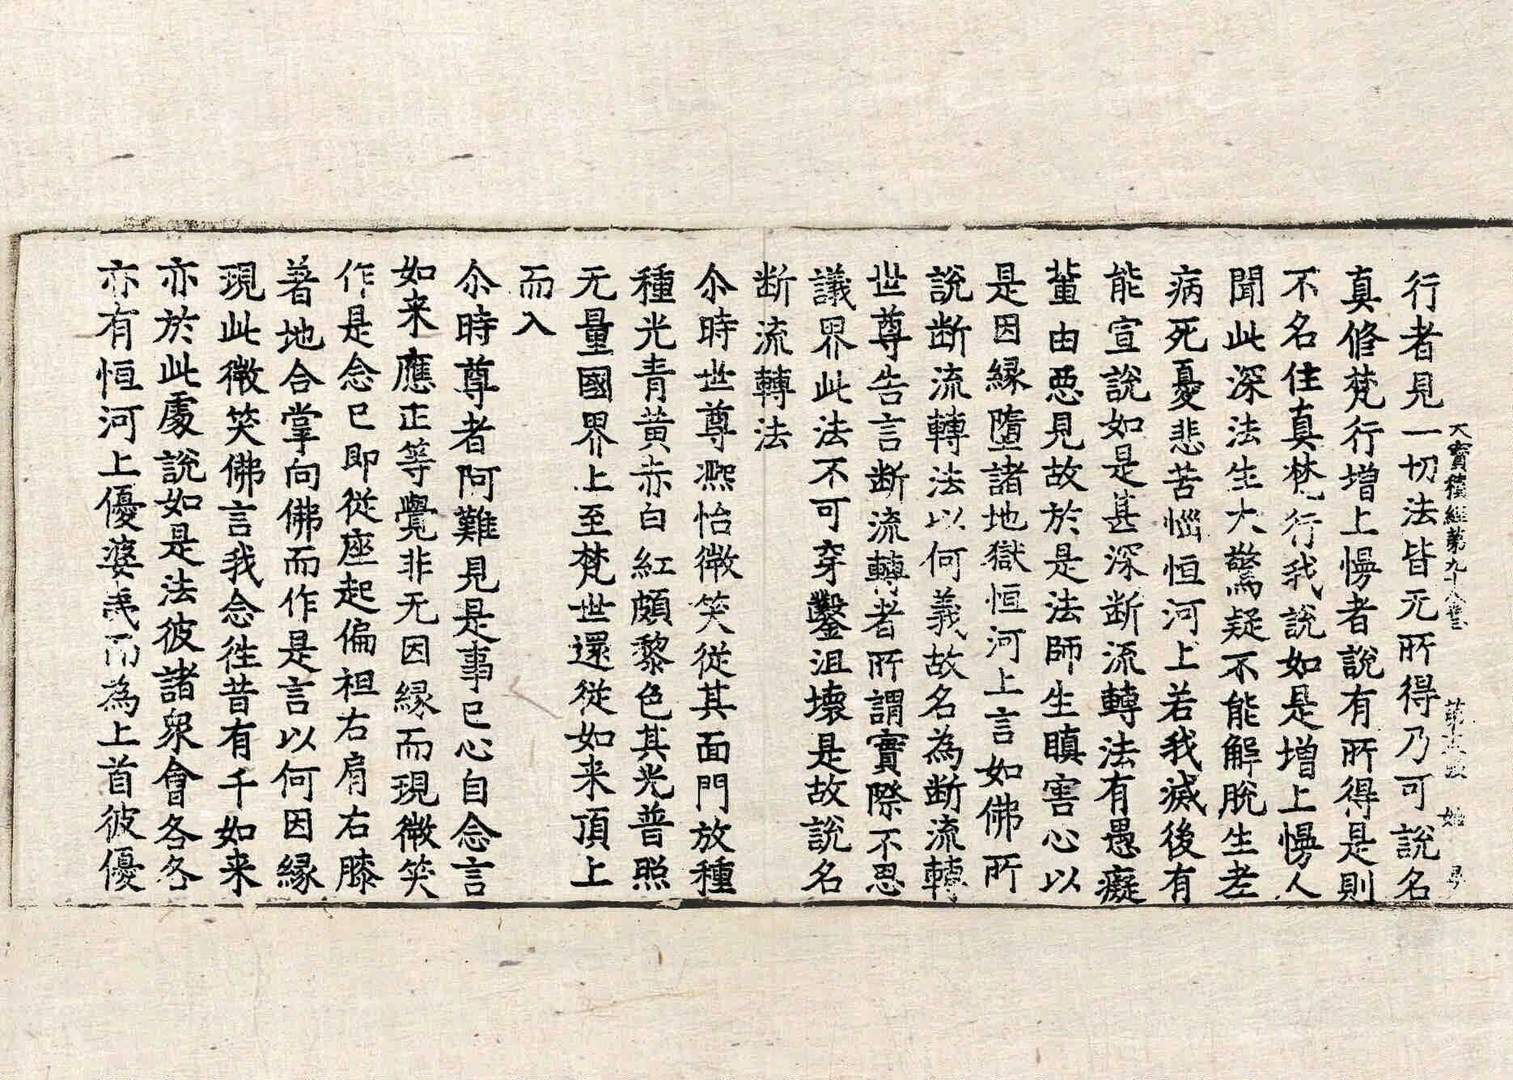 大寶積經第九十八 第十五
行者見一切法皆无所得乃可說名
真修梵行增上慢者說有所得是則
不名住真梵行我說如是增上慢人
聞此深法生大驚疑不能解脫生老
病死憂悲苦惱恒河上若我滅後有
能宣說如是甚深斷流轉法有愚癡
輩由惡見故於是法師生瞋害心以
是因縁墮諸地獄恒河上言如佛所
說断流轉法以何義故名為断流轉
世尊告言断流轉者所謂實際不思
議界此法不可穿鑿沮壞是故說名
断流轉法
尒時世尊凞怡微笑從其面門放種
種光青黃赤白紅頗黎色其光普照
无量國界上至梵世還從如来頂上
而入
尒時尊者阿難見是事已心自念言
如来應正等覺非无因縁而現微笑
作是念已即從座起偏袒右肩右膝
著地合掌向佛而作是言以何因縁
現此微笑佛言我念徃昔有千如来
亦於此處說如是法彼諸衆會各各
亦有恒河上優婆夷而為上首彼優